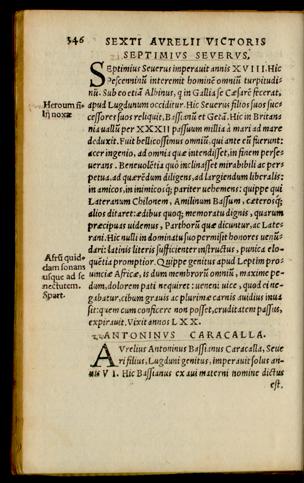 346 SEXTI AVRELII VICTORIS
SEPTIMIVS SEVERVS.
Septimius Seuerus imperauit annis XVIII. Hic
Pescenniũ interemit hominẽ omniũ turpitudi-
nũ. Sub eo etiã Albinus, q in Gallia se Cæsarẽ fecerat,
Heroum fi-
lij noxæ
apud Lugdunum occiditur. Hic Seuerus filios suos suc-
cessores suos reliquit, Bassianũ et Getã. Hic in Britan
nia uallũ per XXXII passuum millia à mari ad mare
deduxit. Fuit bellicosissimus omniũ, qui ante eũ fuerunt:
acer ingenio, ad omnia quæ intendisset, in finem perse-
uerans. Beneuolẽtia quò inclinasset mirabili ac perpe-
tua. ad quærẽdum diligens, ad largiendum liberalis:
in amicos, in inimicosq; pariter uehemens: quippe qui
Lateranum Chilonem, Amilinum Bassum, cæterosq;
alios ditaret: ædibus quoq; memoratu dignis, quarum
præcipuas uidemus, Parthorũ quæ dicuntur, ac Late-
rani. Hic nulli in dominatu suo permisit honores uenũ-
dari: latinis literis sufficienter instructus, punica elo-
Afrũ quid-
dam sonans
usque ad se
nectutem.
Spart.
quẽtia promptior. Quippe genitus apud Leptim pro-
uinciæ Africæ, is dum membrorũ omniũ, maxime pe-
dum, dolorem pati nequiret: ueneni uice, quod ei ne-
gabatur, cibum grauis ac plurimæ carnis auidius inua
sit: quem cum conficere non posset, cruditatem passus,
expirauit. Vixit annos LXX.
ANTONINVS CARACALLA.
Avrelius Antoninus Bassianus Caracalla, Seue
ri filius, Lugduni genitus, imperauit solus an-
nis VI. Hic Bassianus ex aui materni nomine dictus
est.